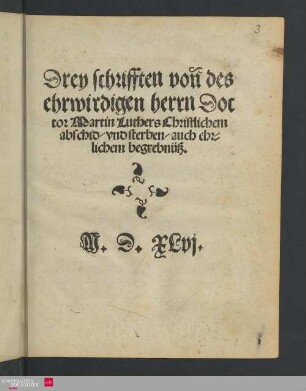 3
Drey schrifften voñ des
ehrwirdigen herrn Doc
tor Martin Luthers Christlichem
abschid/ vnd sterben/ auch ehr⸗
lichem begrebnüß.
M. D. XLvj.